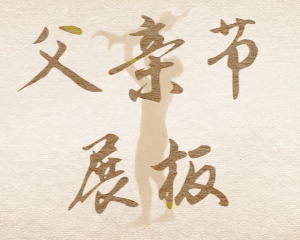 父亲节
展板